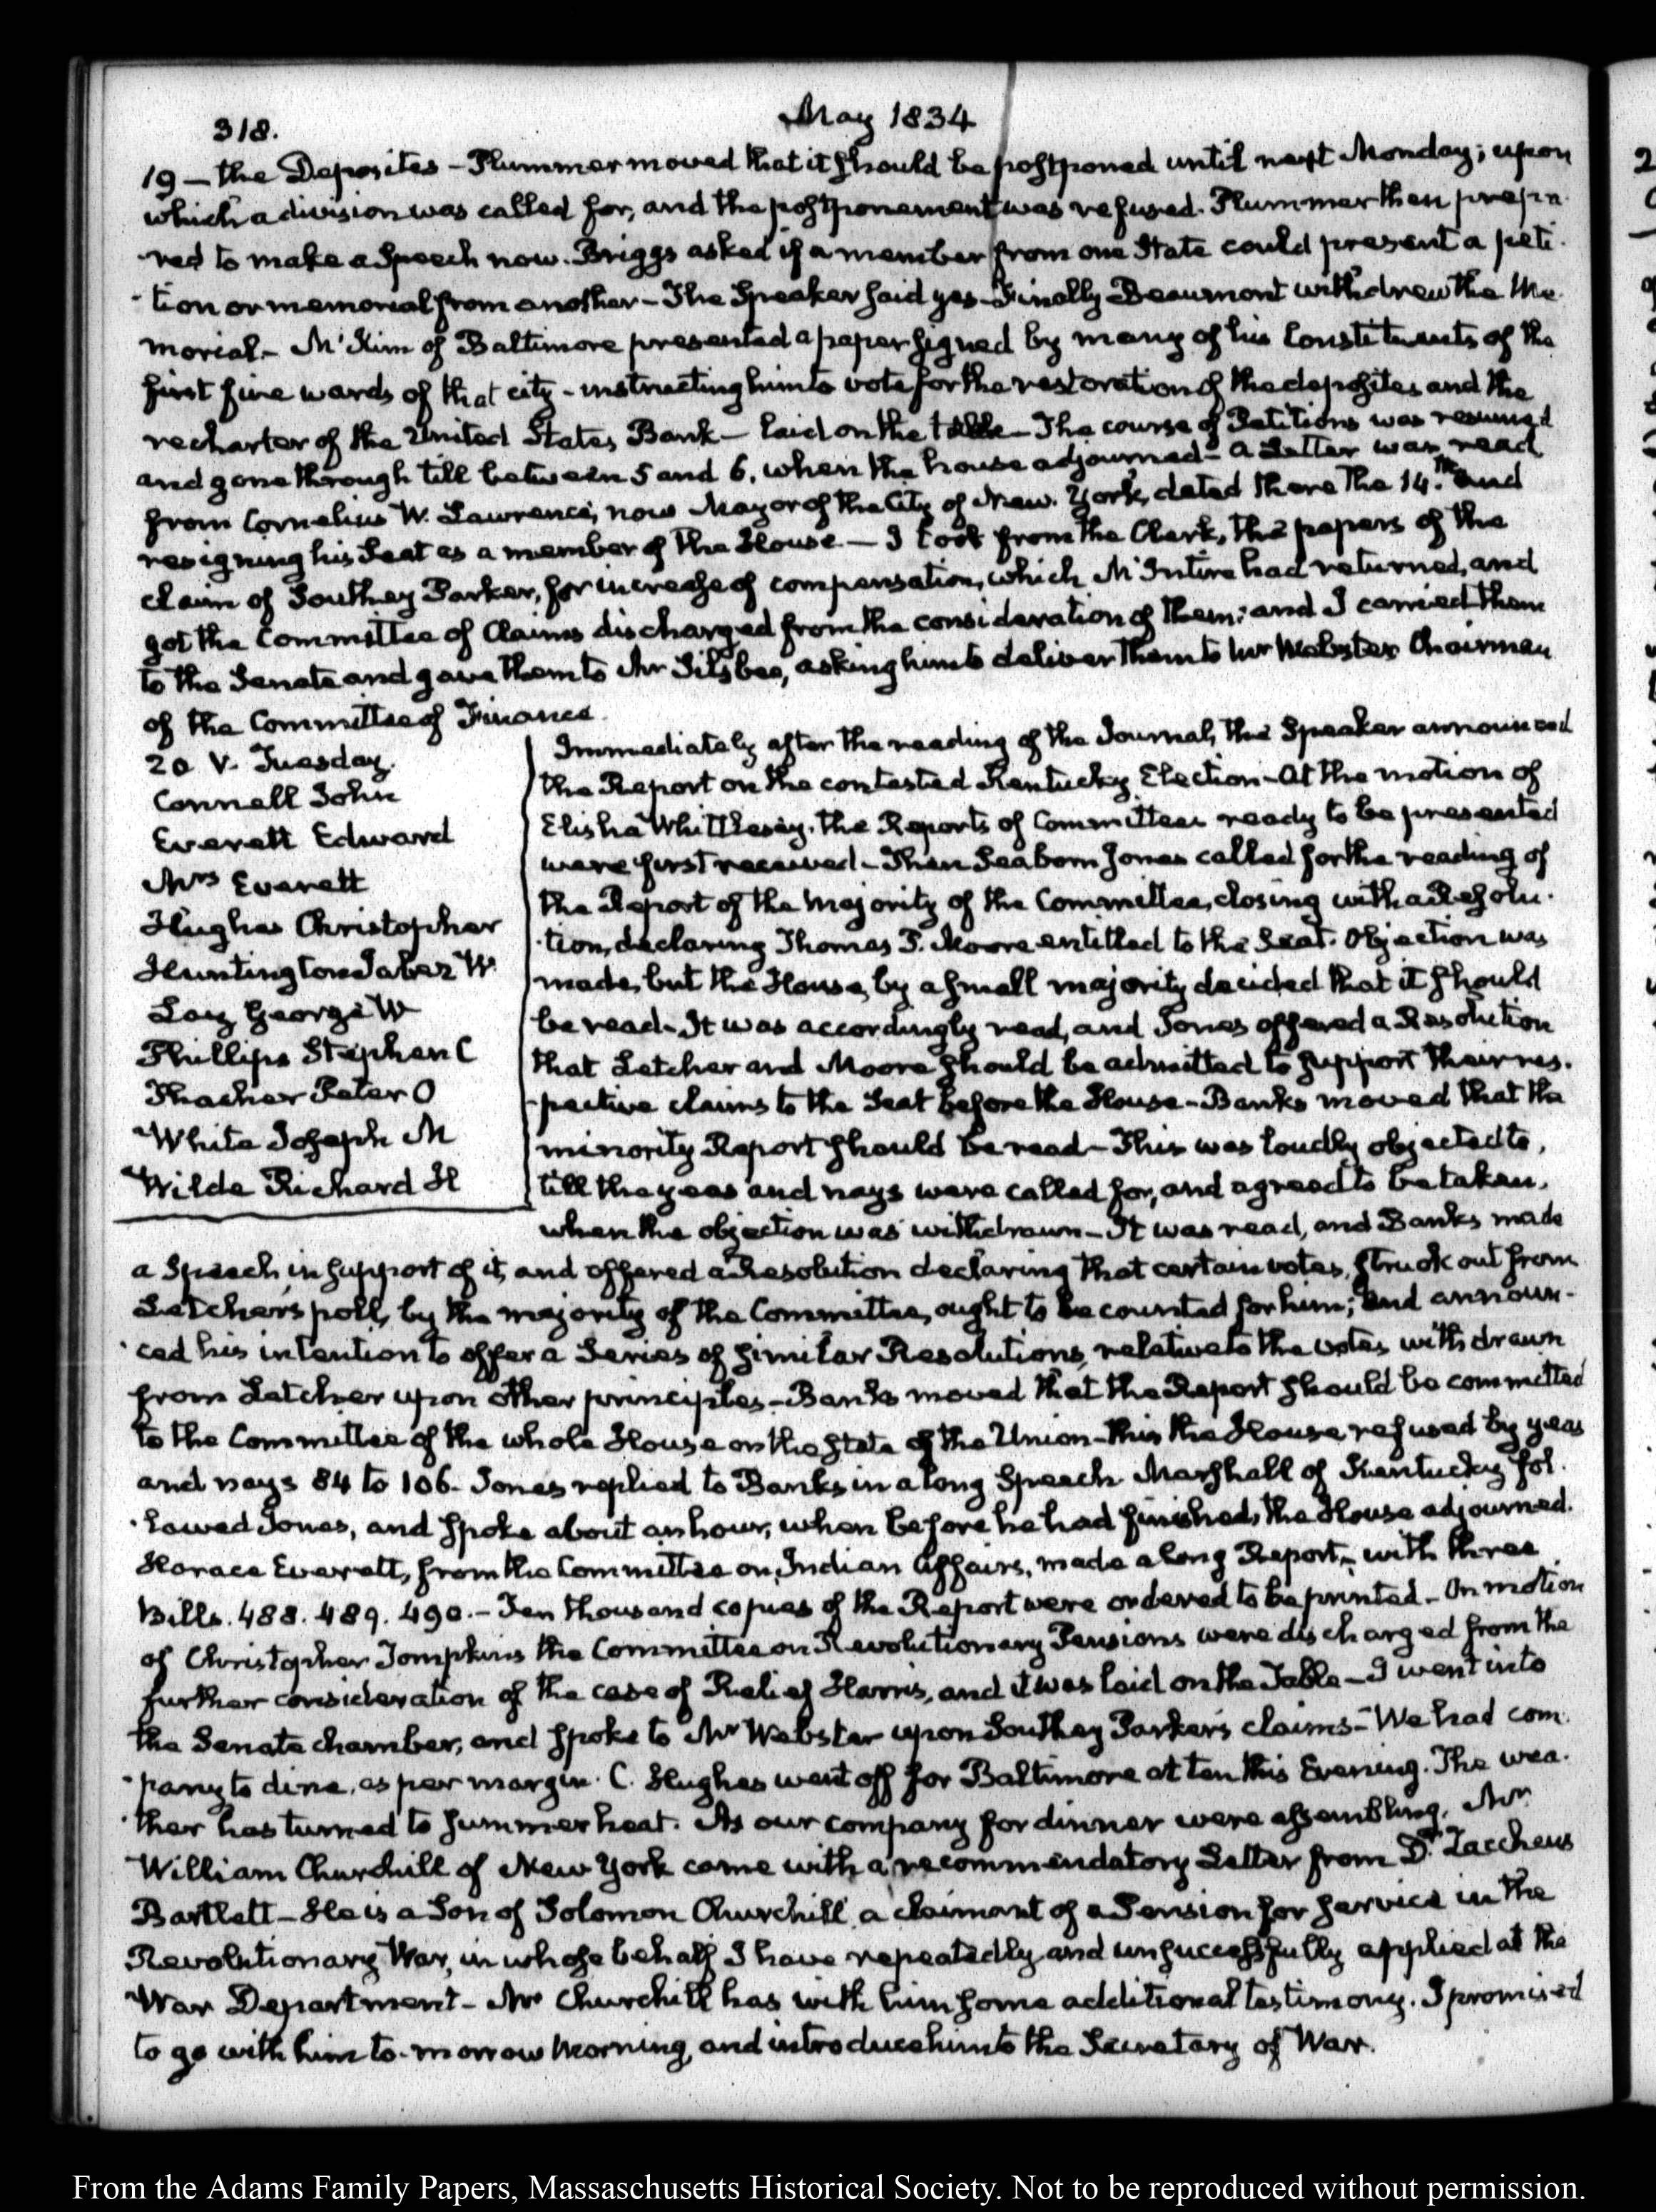 318.
May 1834
19 — the Deposites — Plummer moved that it should be postponed until next Monday; upon
which a division was called for, and the postponement was refused. Plummer then prepa-
-red to make a Speech now. Briggs asked if a member from one State could present a peti-
-tion or memorial from another — The Speaker said yes — Finally Beaumont withdrew the Me-
morial — McKim of Baltimore presented a paper signed by many of his Constituents of the
first five wards of that city — instructing him to vote for the restoration of the deposites and the
recharter of the United States Bank — laid on the table — The course of Petitions was resumed
and gone through till between 5 and 6, when the house adjourned — A Letter was read
from Cornelius W. Lawrence, now Mayor of the City of New-York, dated there the 14th. and
resigning his Seat as a member of the House — I took from the Clerk, the papers of the
claim of Southey Parker, for increase of compensation, which McIntire had returned, and
got the Committee of Claims discharged from the consideration of them; and I carried them
to the Senate and gave them to Mr Silsbee, asking him to deliver them to Mr Webster Chairman
of the Committee of Finance.
20 V. Tuesday.
Connell John
Everett Edward
Mrs Everett
Hughes Christopher
Huntington Jabez W.
Lay George W
Phillips Stephen C
Thacher Peter O
White Joseph M
Wilde Richard H
Immediately after the reading of the Journal, the Speaker announced
the Report on the contested Kentucky Election — At the motion of
Elisha Whittlesey, the Reports of Committees ready to be presented
were first received — Then Seaborn Jones called for the reading of
the Report of the Majority of the Committee, closing with a Resolu-
-tion, declaring Thomas P. Moore entitled to the Seat. Objection was
made, but the House, by a small majority decided that it should
be read — It was accordingly read, and Jones offered a Resolution
that Letcher and Moore should be admitted to support their res-
-pective claims to the Seat before the House — Banks moved that the
minority Report should be read — This was loudly objected to,
till the yeas and nays were called for, and agreed to be taken,
when the objection was withdrawn — It was read, and Banks made
a Speech in support of it, and offered a Resolution declaring that certain votes, struck out from
Letcher's poll, by the majority of the Committee, ought to be counted for him; and announ-
-ced his intention to offer a Series of similar Resolutions, relative to the votes withdrawn
from Letcher upon other principles — Banks moved that the Report should be committed
to the Committee of the whole House on the State of the Union — this the House refused by yeas
and nays 84 to 106. Jones replied to Banks in a long Speech Marshall of Kentucky fol-
-lowed Jones, and spoke about an hour, when before he had finished, the House adjourned.
Horace Everett, from the Committee on Indian Affairs, made a long Report, with three
Bills. 488. 489. 490. — Ten thousand copies of the Report were ordered to be printed — On motion
of Christopher Tompkins the Committee on Revolutionary Pensions were discharged from the
further consideration of the case of Relief Harris, and it was laid on the Table — I went into
the Senate chamber, and spoke to Mr Webster upon Southey Parker's claims — We had com-
-pany to dine, as per margin. C. Hughes went off for Baltimore at ten this Evening. The wea-
-ther has turned to summer heat. As our company for dinner were assembling, Mr
William Churchill of New York came with a recommendatory Letter from Dr Zaccheus
Bartlett — He is a Son of Solomon Churchill, a claimant of a Pension for service in the
Revolutionary War, in whose behalf I have repeatedly and unsuccessfully applied at the
War Department — Mr Churchill has with him some additional testimony. I promised
to go with him to-morrow Morning, and introduce him to the Secretary of War.
From the Adams Family Papers, Massachusetts Historical Society. Not to be reproduced without permission.